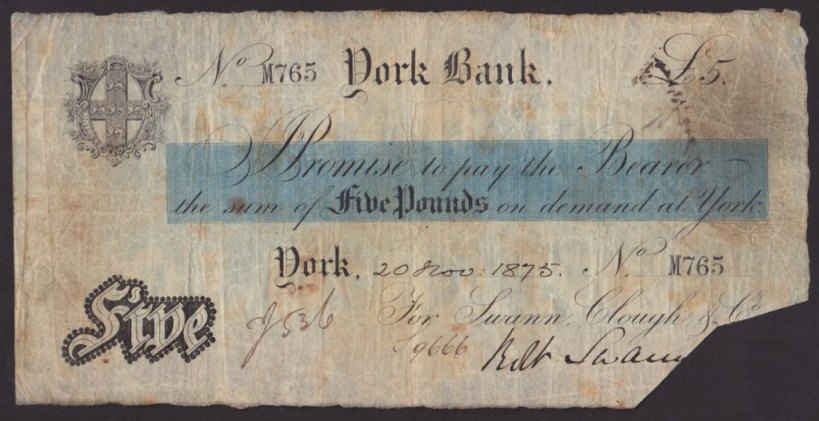 No M765 York Bank. £5.
I Promise to pay the Bearer
the sum of Five Pounds on demand at York:
York, 20 Nov: 1875. No M765
For Swann, Clough & Co
Five
J536
9666
Robt Swann